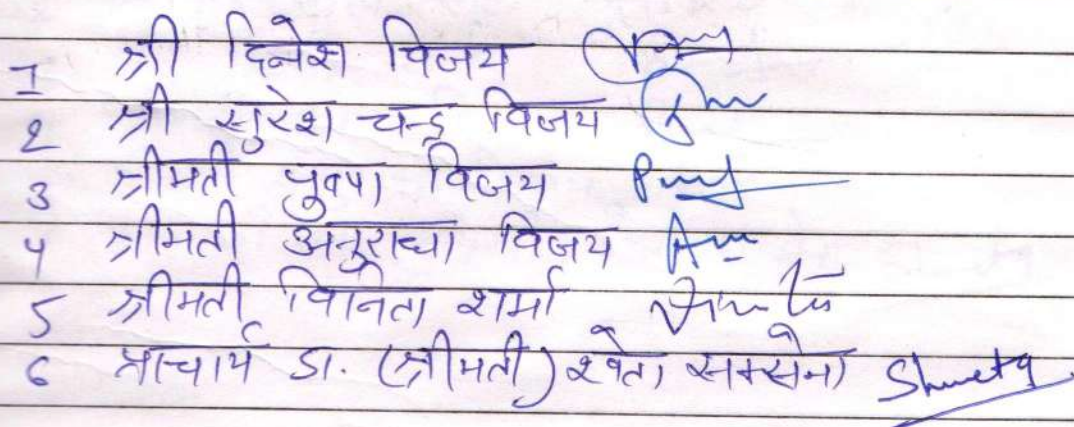 1 श्री दिनेश विजय
2 श्री सुरेश चन्द्र विजय
3 श्रीमती पुष्पा विजय
4 श्रीमती अनुराधा विजय
5 श्रीमती विनिता शर्मा
6 प्राचार्य डा. (श्रीमती) श्वेता सक्सेना Shweta